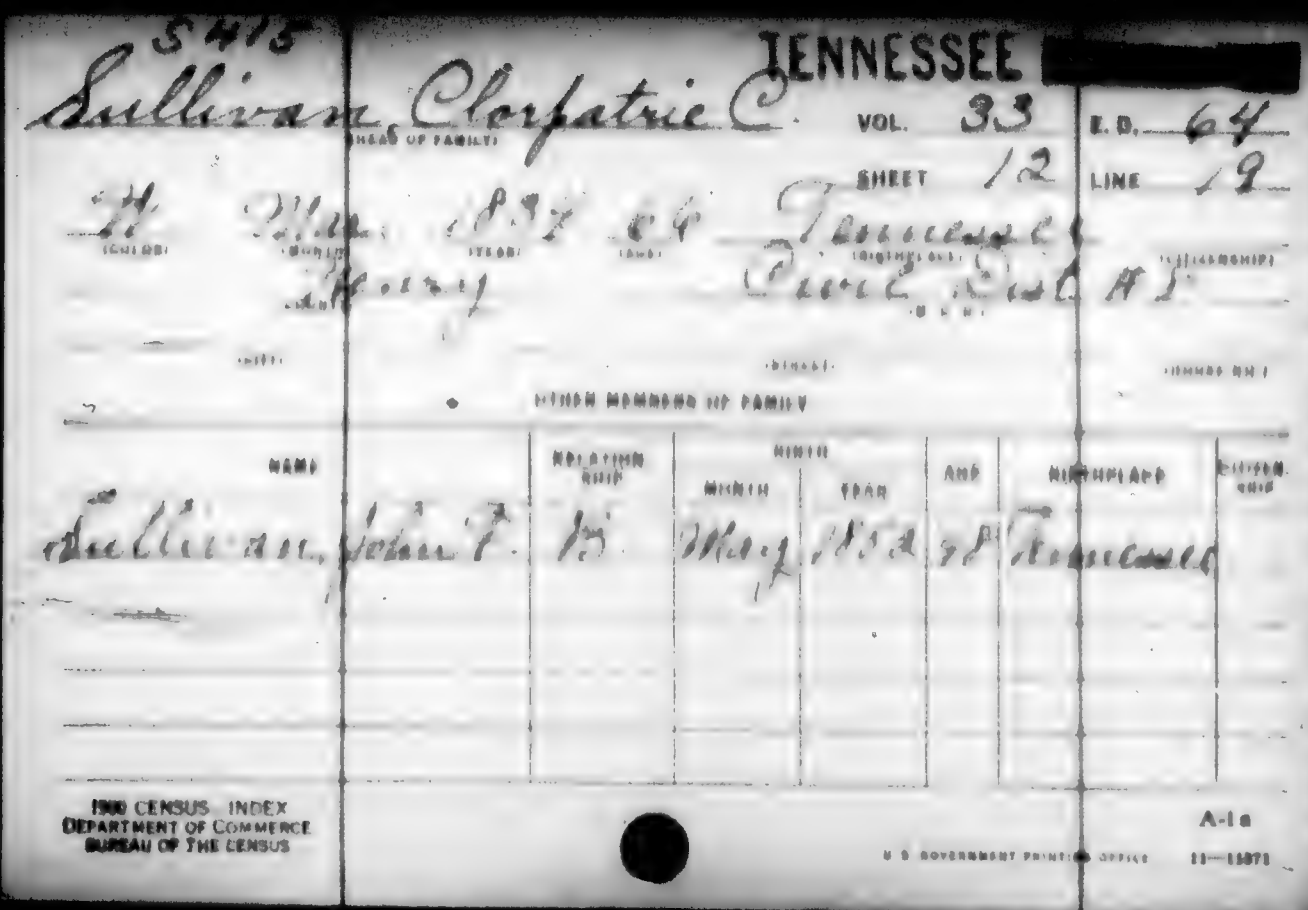 S 415
TENNESSEE
Sullivan, Clorpatric C. VOL. 33 E. D. 64
(HEAD OF FAMILY)
SHEET 12 LINE 19
W Mar 66 Tennessee
(COLOR) (MONTH) (YEAR) (AGE) (BIRTHPLACE) (CITIZENSHIP)
Henry Civil Dist #
(COUNTY) (M. C. D.)
(CITY) (STREET) (HOUSE NO.)
OTHER MEMBERS OF FAMILY
NAME RELATIONSHIP BIRTH AGE BIRTHPLACE CITIZENSHIP
MONTH YEAR
Sullivan, John F. B May 1852 48 Tennessee
1900 CENSUS INDEX
DEPARTMENT OF COMMERCE
BUREAU OF THE CENSUS
A-1a
U S GOVERNMENT PRINTING OFFICE 11—11071